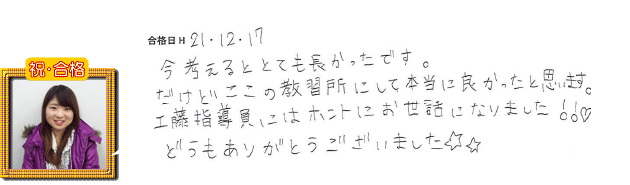 合格日 H 21・12・17
祝・合格
今考えるととても長かったです。
だけどここの教習所にして本当に良かったと思います。
工藤指導員にはホントにお世話になりました!!♡
どうもありがとうございました☆☆